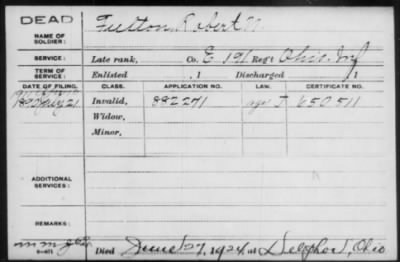 DEAD
NAME OF SOLDIER: Fulton, Robert
SERVICE: Late rank, Co. E 191 Reg't Ohio Inf
TERM OF SERVICE: Enlisted , 1 Discharged , 1
DATE OF FILING. CLASS. APPLICATION NO. LAW. CERTIFICATE NO.
July 21 Invalid, 892271 650511
Widow,
Minor,
ADDITIONAL SERVICES:
REMARKS:
Died June 27, 1924, at Delphos, Ohio